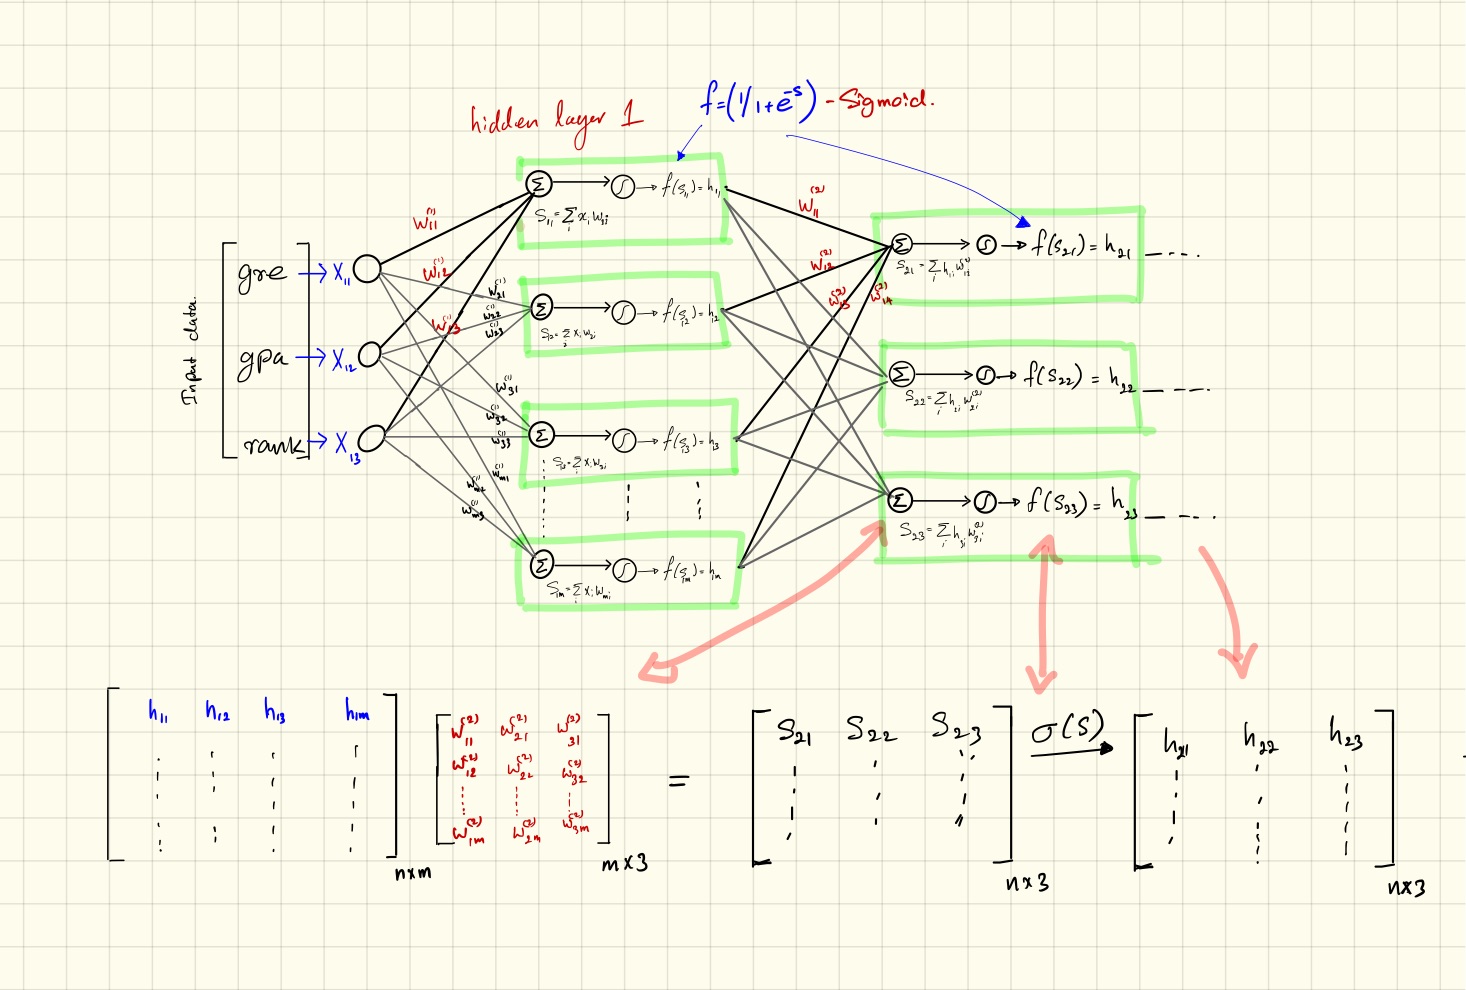 f=(1/1+e^-s) - Sigmoid.
hidden layer 1
Input data.
gre → X₁₁
gpa → X₁₂
rank → X₁₃
W₁₁⁽¹⁾
W₁₂⁽¹⁾
W₁₃⁽¹⁾
W₂₁⁽¹⁾
W₂₂⁽¹⁾
W₂₃⁽¹⁾
W₃₁⁽¹⁾
W₃₂⁽¹⁾
W₃₃⁽¹⁾
Wm₁⁽¹⁾
Wm₂⁽¹⁾
Wm₃⁽¹⁾
Σ → ∫ → f(s₁₁) = h₁₁
S₁₁ = Σ xᵢ w₁ᵢ
Σ → ∫ → f(s₁₂) = h₁₂
S₁₂ = Σ xᵢ w₂ᵢ
Σ → ∫ → f(s₁₃) = h₁₃
S₁₃ = Σ xᵢ w₃ᵢ
Σ → ∫ → f(s₁m) = h₁m
S₁m = Σ xᵢ wmᵢ
W₁₁⁽²⁾
W₁₂⁽²⁾
W₁₃⁽²⁾
W₁₄⁽²⁾
Σ → ∫ → f(s₂₁) = h₂₁ ----
S₂₁ = Σ h₁ᵢ w₁ᵢ⁽²⁾
Σ → ∫ → f(s₂₂) = h₂₂ ----
S₂₂ = Σ h₂ᵢ w₂ᵢ⁽²⁾
Σ → ∫ → f(s₂₃) = h₂₃ ----
S₂₃ = Σ h₃ᵢ w₃ᵢ⁽²⁾
h₁₁ h₁₂ h₁₃ h₁m
n×m
W₁₁⁽²⁾ W₂₁⁽²⁾ W₃₁⁽²⁾
W₁₂⁽²⁾ W₂₂⁽²⁾ W₃₂⁽²⁾
W₁m⁽²⁾ W₂m⁽²⁾ W₃m⁽²⁾
m×3
=
S₂₁ S₂₂ S₂₃
n×3
σ(S) →
h₂₁ h₂₂ h₂₃
n×3